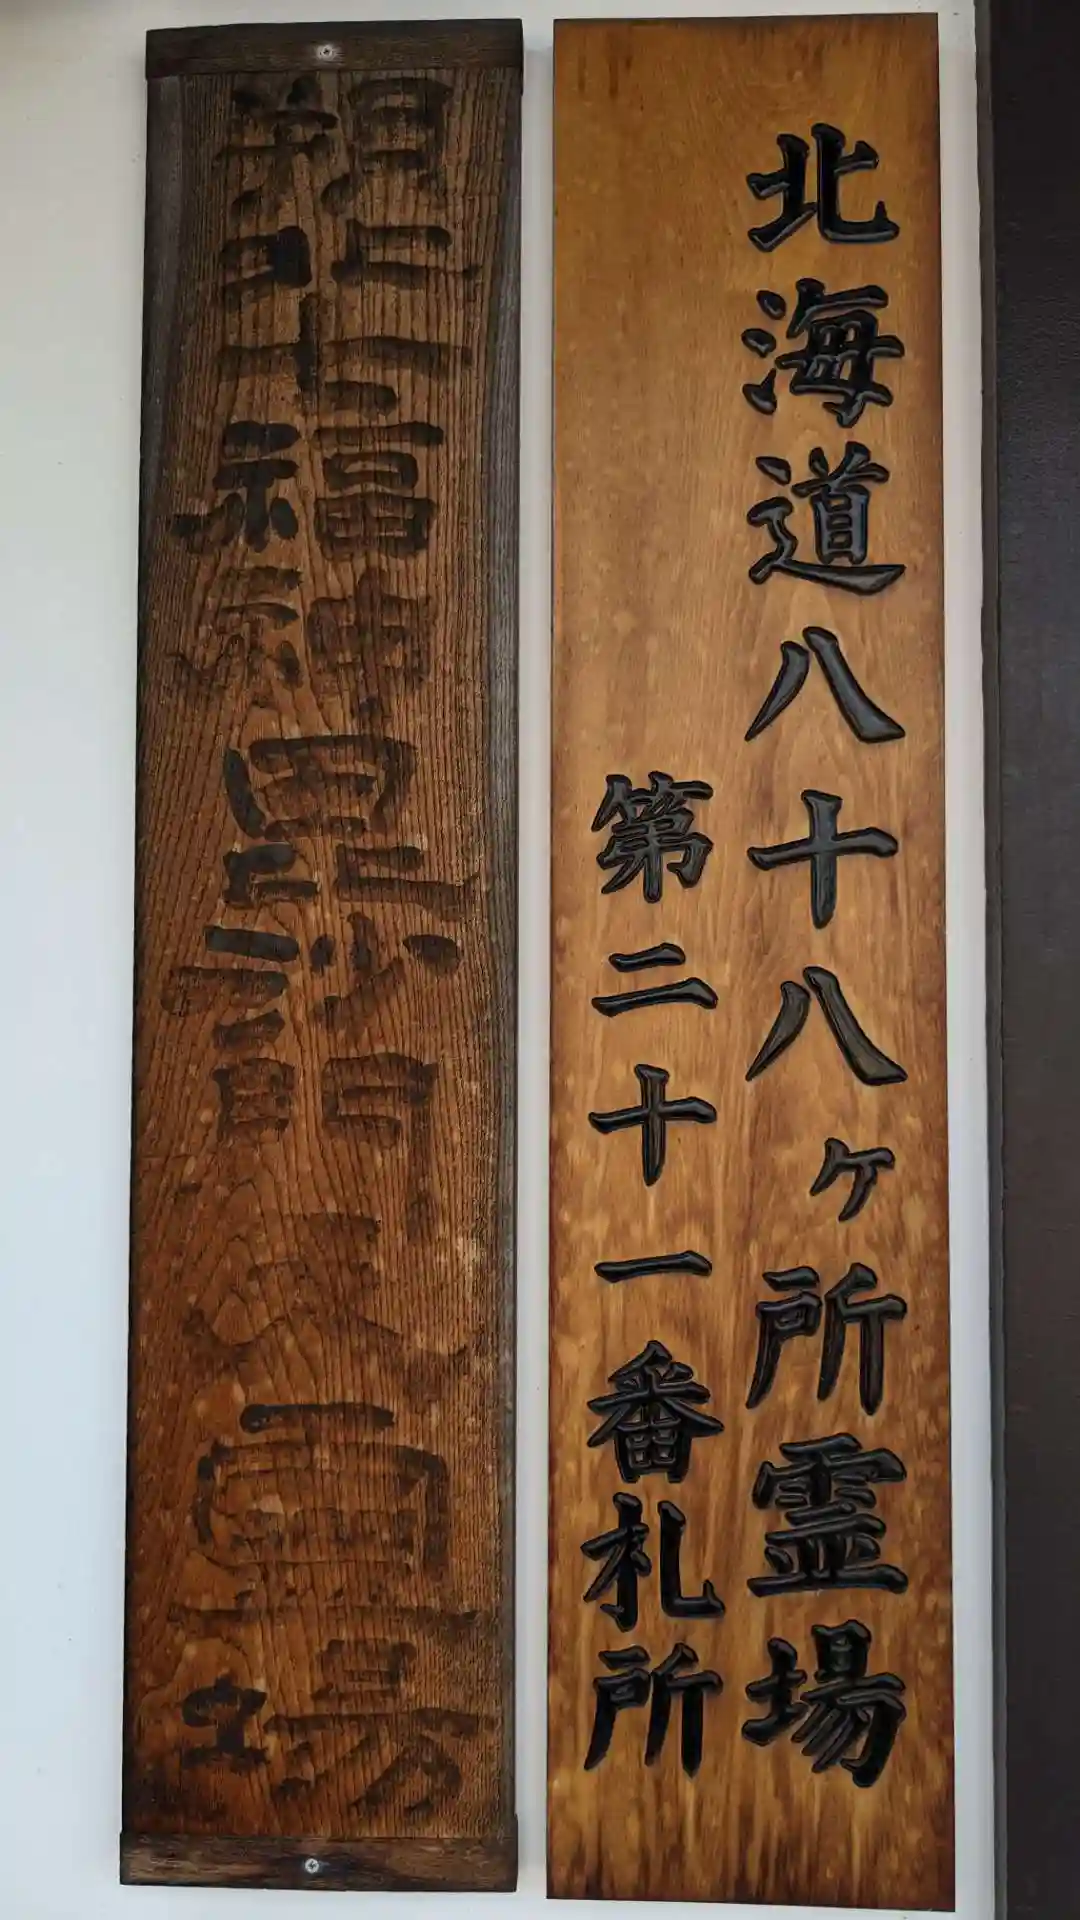 北海道八十八ヶ所霊場
第二十一番札所
福神毘沙門天霊場